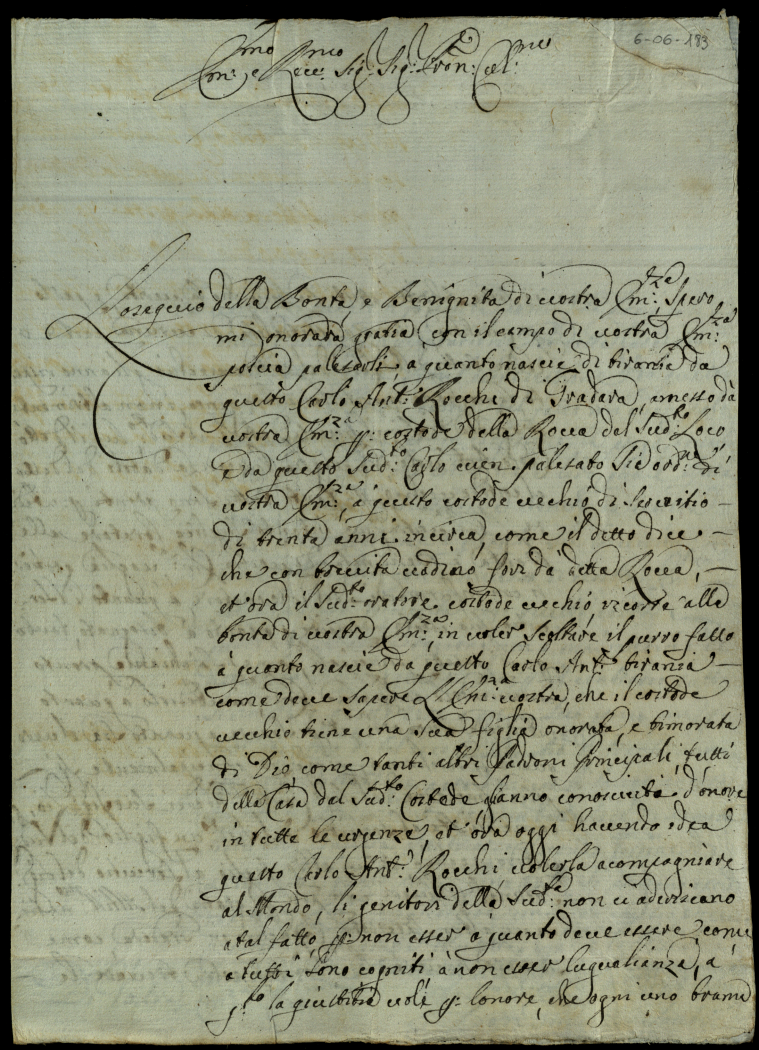 6-06-183
Em:mo e Reu:mo Sig: Sig: Pron: Col:mo
L'osequio della Bontà e Benignità di vostra Em:za Spero
mi onorarà gratia con il campo di vostra Em:za
poscia palesdoli, a quanto nascie di tirania da
questo Carlo Ant: Rocchi di Gradara, messo dà
vostra Em:za p: costode della Rocca del Sud:to Loco
e da questo Sud:to Carlo vien palesato ord:ne di
vostra Em:za, a questo costode vecchio di Servitio
di trenta anni incirca, come il detto dice
che con brevità vadino fori da detta Rocca,
et ora il Sud:to oratore costode vecchio ricorre alla
bontà di vostra Em:za, in voler il purro fatto
à quanto nascie da questo Carlo Ant: tirania
come deve sapere vostra, che il costode
vecchio tiene una Sua figlia onorata, e timorata
di Dio come tanti altri Padroni Principali, tutti
della Casa dal Sud:to Costode l'anno conosciuta d'onore
in tutte le urgenze, et ora oggi havendo idea
questo Carlo Ant: Rocchi volerla acompagniare
al Mondo, li genitori della Sud:ta non ci aderiscano
a tal fatto p: non esser à quanto deve essere come
a tutti sono cogniti à non esser lugualianza, à
q:to la giustitia vole p: lonore, che ogni uno brama